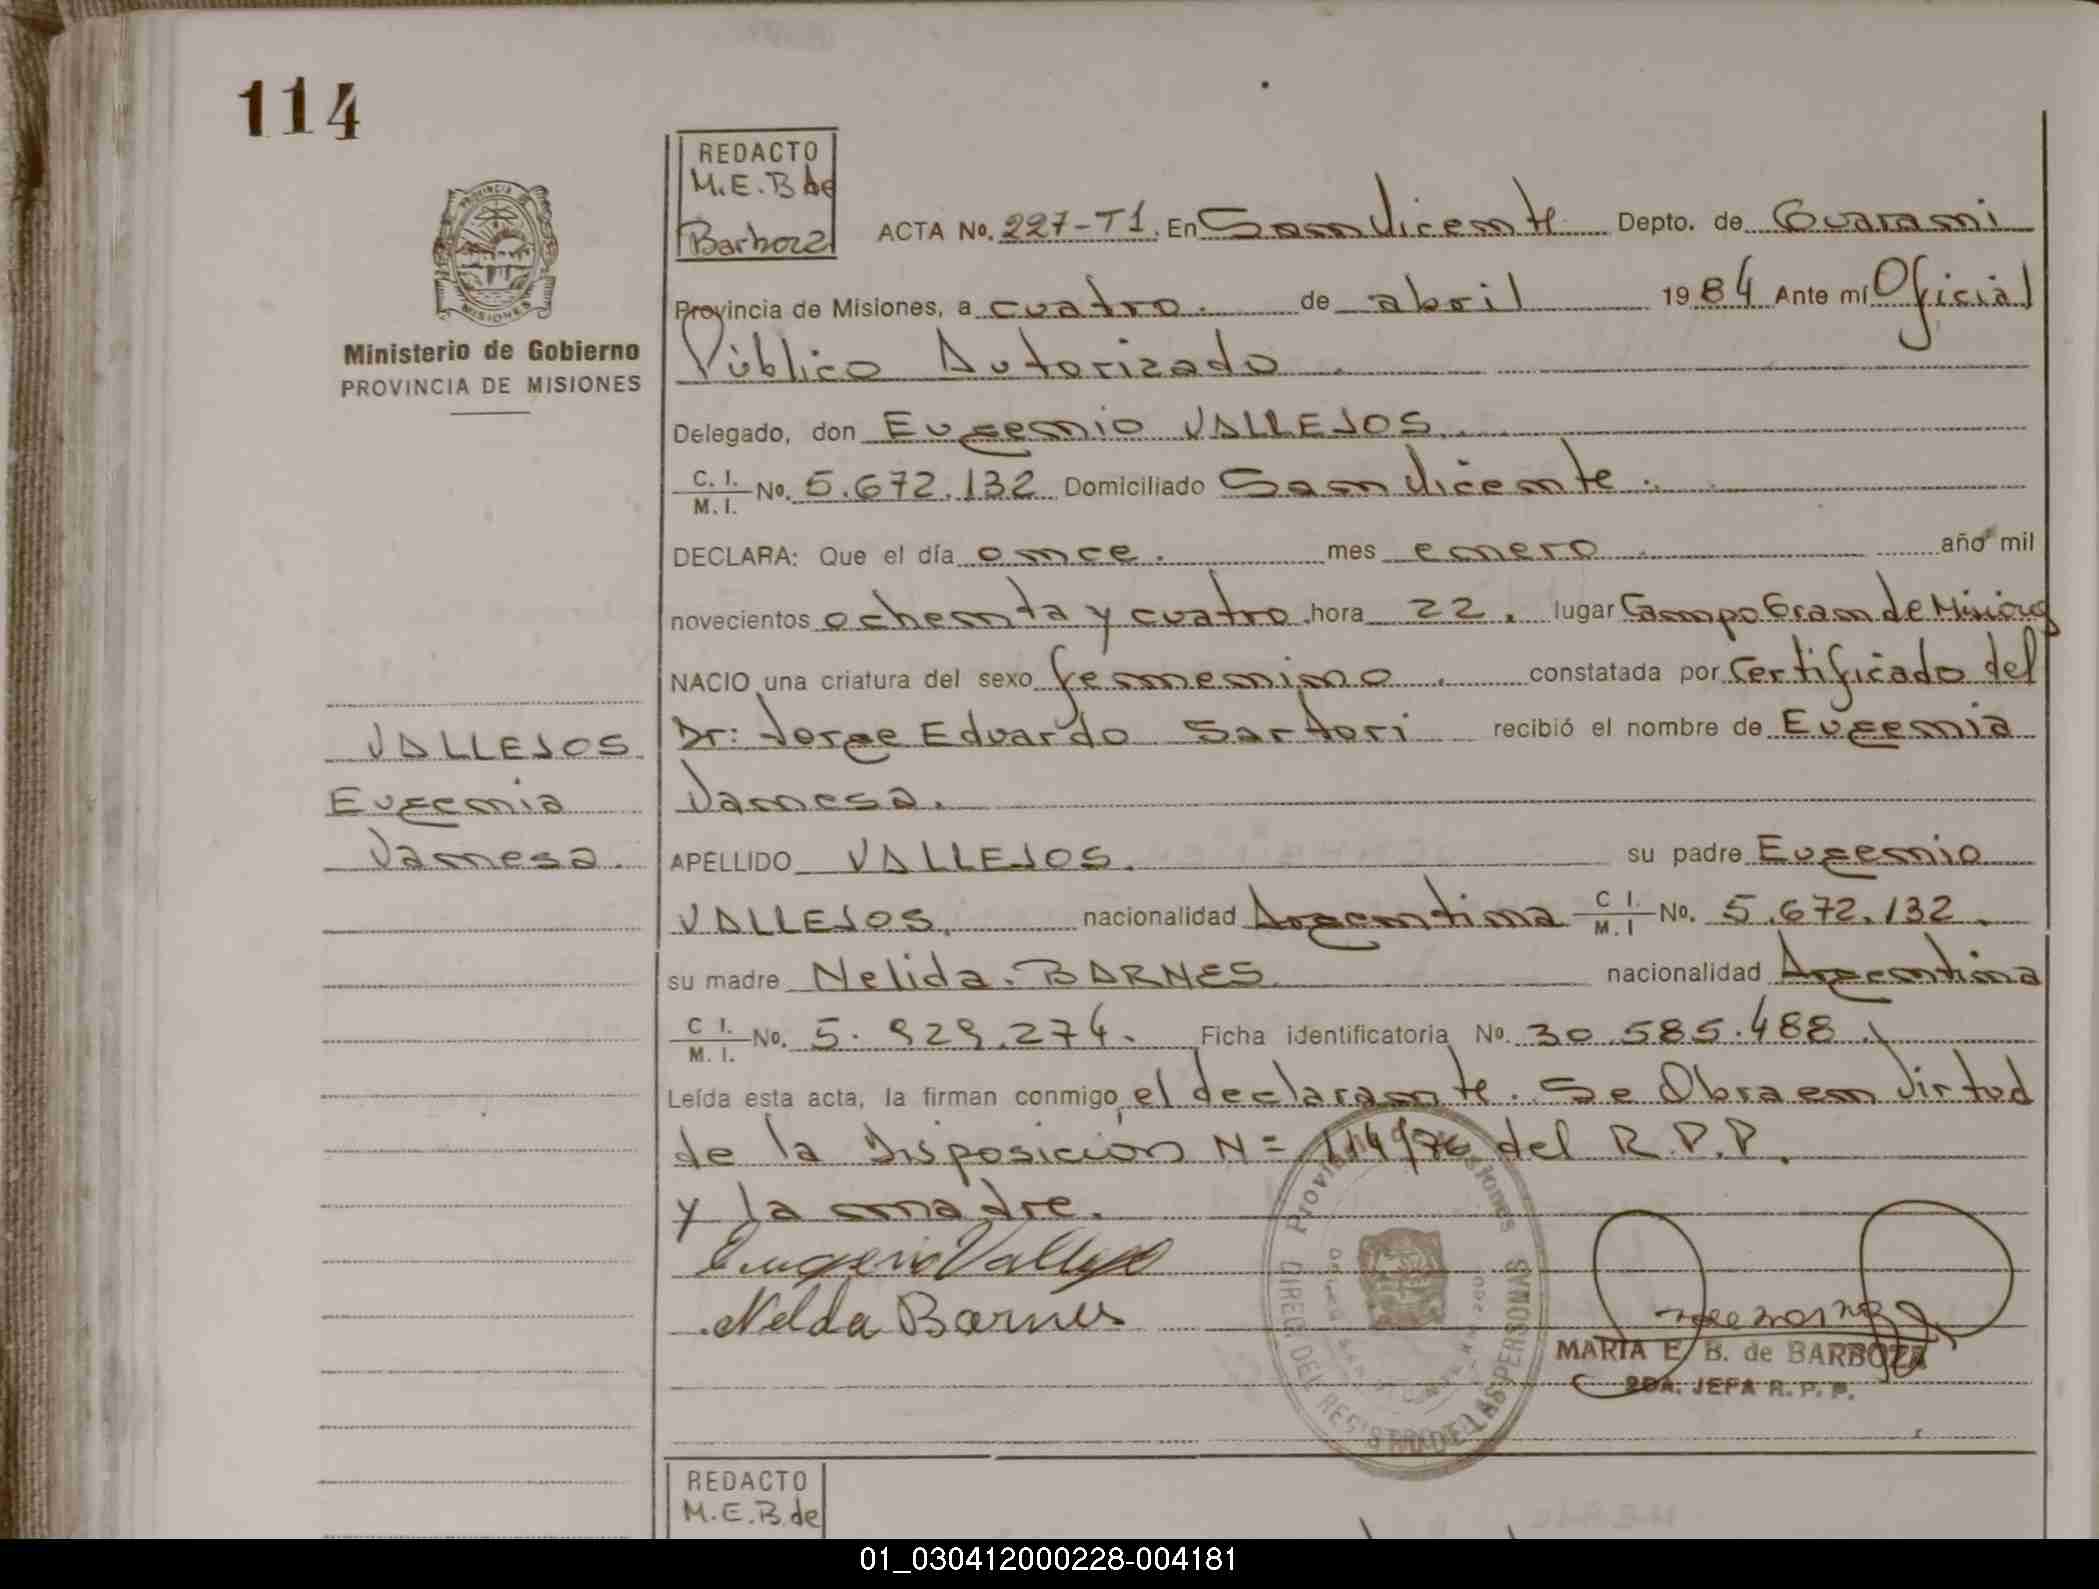 114
REDACTO
M.E.B de
Barboza
ACTA No. 227-T1. En San Vicente Depto. de Guarani
Provincia de Misiones, a cuatro. de abril 1984 Ante mí Oficial
Público Autorizado
Delegado, don Eugenio VALLEJOS.
C. I. / M. I. No. 5.672.132 Domiciliado San Vicente.
DECLARA: Que el día once. mes enero. año mil
novecientos ochenta y cuatro. hora 22. lugar Campo Grande Misiones
NACIO una criatura del sexo femenino. constatada por Certificado del
Dr: Jorge Eduardo Sartori recibió el nombre de Eugenia
Vanesa.
APELLIDO VALLEJOS. su padre Eugenio
VALLEJOS. nacionalidad Argentina C I. / M. I No. 5.672.132.
su madre Nelida. BARNES nacionalidad Argentina
C I. / M. I. No. 5.929.274. Ficha identificatoria No. 30.585.488.
Leída esta acta, la firman conmigo, el declarante. Se Obra en virtud
de la Disposición N= 114/76 del R.P.P.
y la madre.
Eugenio Vallejo
Nelda Barnes
MARIA E. B. de BARBOZA
2DA. JEFA R. P. P.
Provincia de Misiones
DIREC. DEL REGISTRO DE LAS PERSONAS
PROVINCIA DE
MISIONES
Ministerio de Gobierno
PROVINCIA DE MISIONES
VALLEJOS
Eugenia
Vanesa.
REDACTO
M.E.B. de
01_030412000228-004181